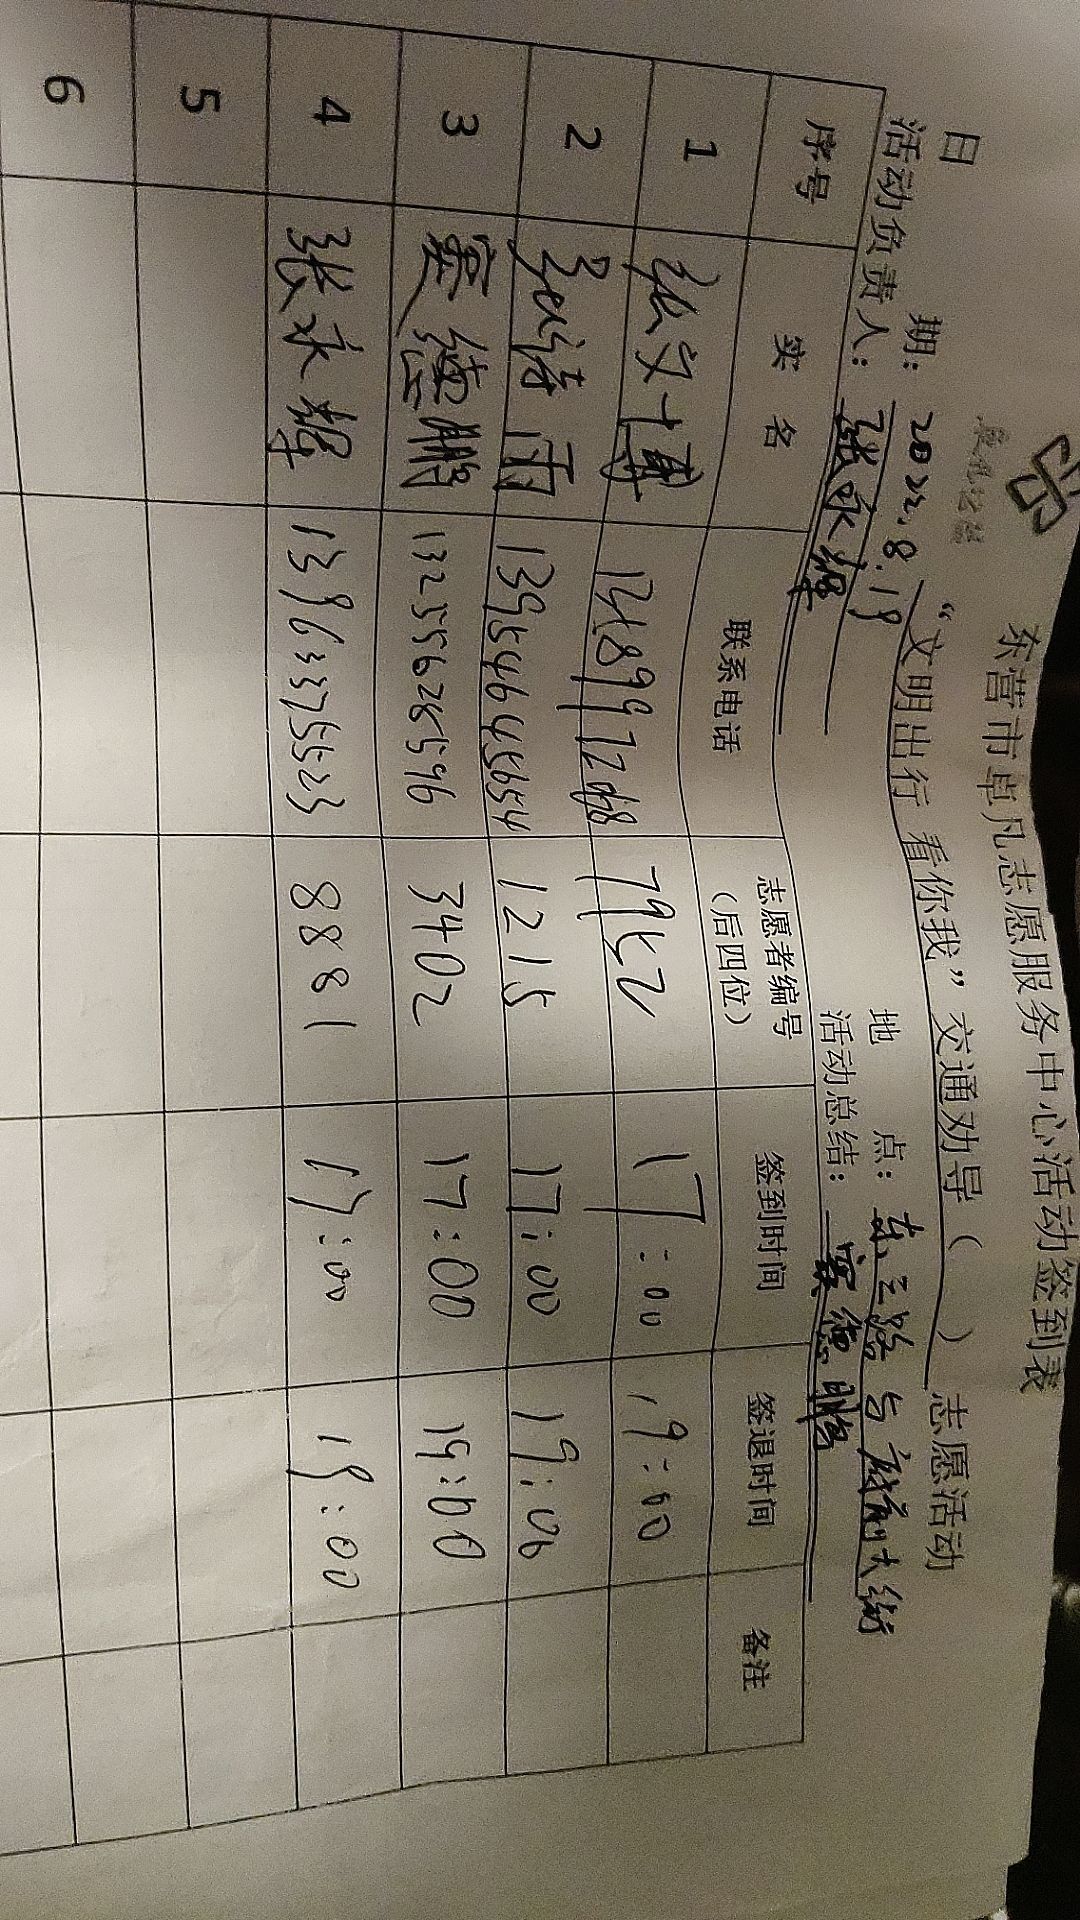 东营市卓凡志愿服务中心活动签到表
“文明出行 看你我”交通劝导（ ）志愿活动
日 期：2022.8.19 地 点：东三路与府前大街
活动负责人：张永辉 活动总结：窦德鹏
序号 实 名 联系电话 志愿者编号（后四位） 签到时间 签退时间 备注
1 17:00 19:00
2 诗雨 1215 17:00 19:00
3 窦德鹏 13255628596 3402 17:00 19:00
4 张永辉 13963375523 8881 17:00 19:00
5
6